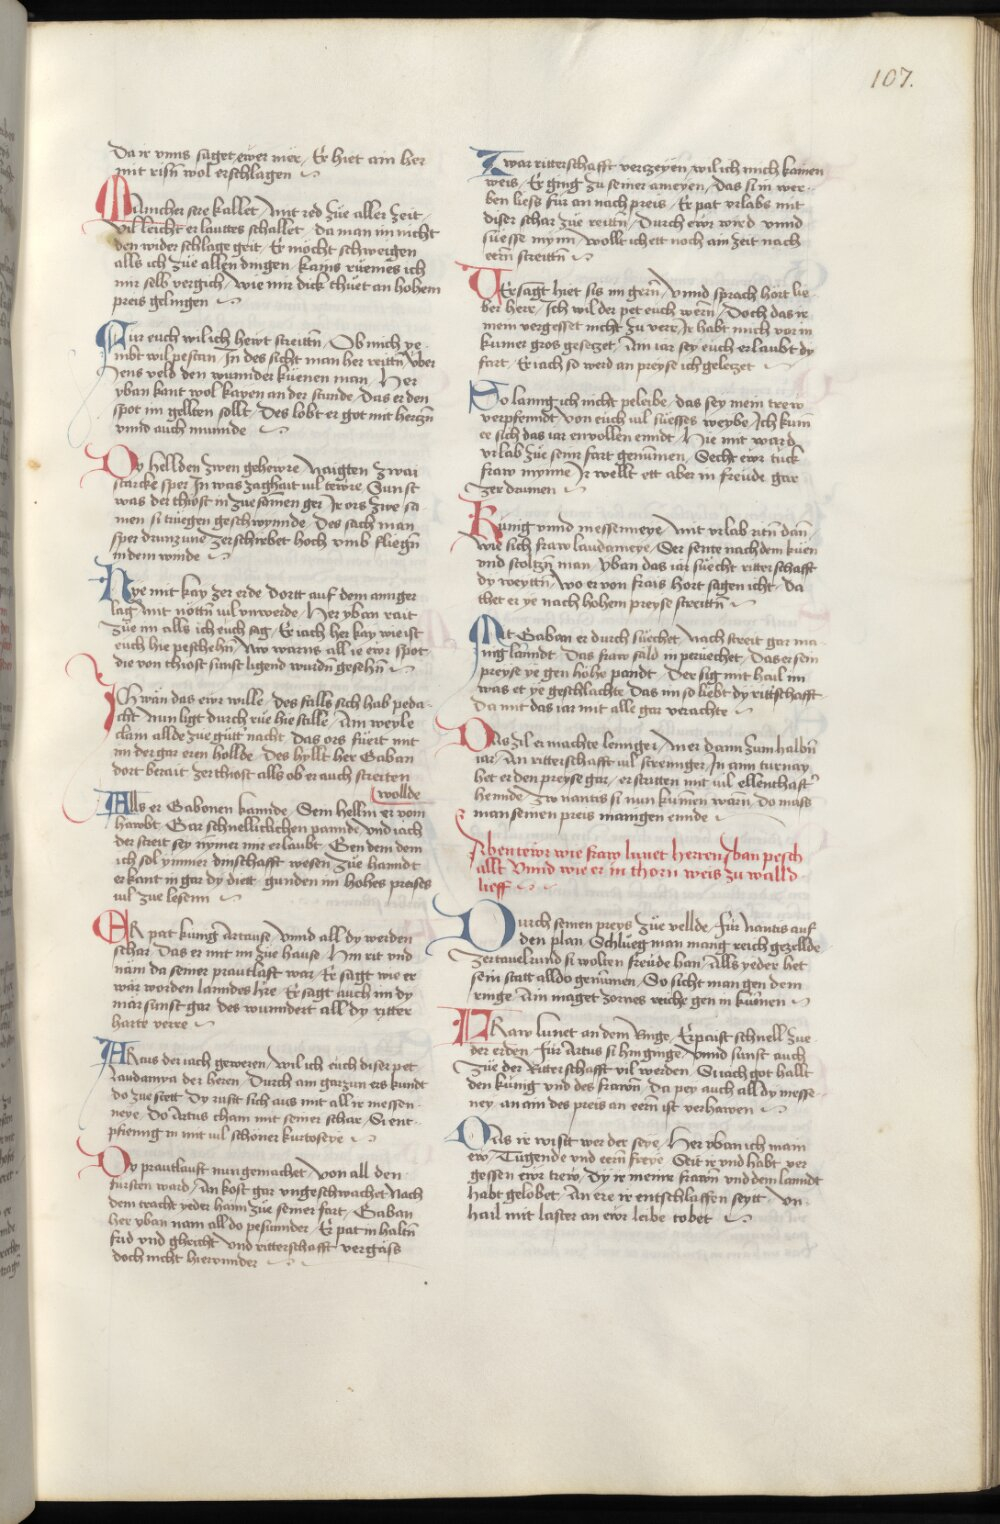 107.
Da ir vnns saget ewer mer / Er hiet ain her
mit risn wol erschlagen
Manicher sere kallet / mit red zue aller zeit /
Vil leicht er lauttes schallet / da man im nicht
den widerschlage geit / Er mocht schweigen
alls ich zue allen dingen / kains ruemes ich
mir selb vergich / wie mir dick thuet an hohem
preis gelingen
Fur euch wil ich hewt streittn / Ob mich ye
mbt wil pestan / In des sicht man her reittn / vber
Jens veld den wunnder kuenen man / Her
yban kant wol kayen an der stunde / Das er den
spot im gellten sollt / Des lobt er got mit herczn
vnnd auch munnde
Dy hellden zwen gehewre / Naigten zwai
starcke sper / In was zaghait vil tewre / Sunst
was der thiost in zuesamen ger / Ir ors zwe sa
men si truegen geschwynnde / Des sach man
sper drunzune zerschibet hoch vmb fliegn
in dem winde
Hye mit kay zer erde / dortt auf dem annger
lag / mit nöttn vil vnwerde / Her yban rait
zue im alls ich euch sag / Er iach her kay wie ist
euch hie peschehn / Nw warns all ie ewr spot
die von thiost sunst ligend wurdn gesehn
Ich wän das ewr wille / Des falls sich hab peda
cht / Nun ligt durch rue hie stille / Am weyle
clain allde zue gutt nacht / Das ors fuert mit
im der gar eren hollde / Des hyllt her Gaban
dort berait zer thiost alls ob er auch streiten
wollde
Alls er Gabonen kannde / Sein hellm er vom
hawbt / Gar schnellicklichen pannde / vnd iach
der streit sey nymer mir erlaubt / Gen dem dem
ich sol ymmer dinschafft wesen / Zue hanndt
erkant in gar dy diett / gunden im hohes preises
vil zue lesenn
Er pat kunig Artause / vnnd all dy werden
schar / Das er mit im zue hause / Hin rit vnd
näm da seiner prautlaft war / Er sagt wie er
wär worden lanndes hre / Er sagt auch im dy
mär sunst gar / des wunndert all dy ritter
harte verre
Artus der iach geweren / wil ich euch diser pet
Laudamya der heren / Durch ain garzun ers kundt
do zue stett / Dy rusit sich aus mit all ir messen
neye / Do Artus cham mit seiner schar / Si ent
pfienng in mit vil schöner kurtoseye
Dy prautlauft nun gemachet / von all den
fursten ward / An kost gar vngeschwachet / Nach
dem tracht yeder hann zue seiner fart / Gaban
her yban nam alldo pesunnder / Er pat in haltn
frid vnd gericht / vnd ritterschafft vergass
doch nicht hierunnder
Zwar ritterschafft verzeyen / wil ich mich kainen
weis / Er ging zu seiner ameyen / Das si in wer
ben liess für an nach preis / Er pat vrlabs mit
diser schar zue reittn / Durch ewr wird vnnd
suesse mynn / wollt ich ett noch ain zeit nach
eern streittn
Versagt hiet sis im gern / vnnd sprach hört lie
ber herr / Ich wil der pet euch wern / Doch das ir
mein vergesset nicht zu verr / Ir habt mich vor in
kumer gros gesetzet / Ain iar sey euch erlaubt dy
fart / Er iach so werd an preyse ich geletzet
So lanng ich nicht peleibe / das sey mein trew
verpfenndt / von euch vil suesses weybe / Ich kum
ee sich das iar ervollen enndt / Hie mit ward
vrlab zue seinr fart genumen / Secht ewr tuck
fraw mynne / Ir wellt ett aber in freude gar
zerdrumen
Kunig vnnd messeneye / mit vrlab ritn dan
wie sich fraw laudameye / Ser sente nach dem kuen
vnd stoltzn man / yban das iar suecht ritterschafft
dy weyttn / wo er von frais hort sagen icht / Da
thet er ye nach hohem preyse streittn
Mit Gaban er durch suechet / Nach streit gar ma
nig lanndt / Das fraw säld in peruechet / Das er sein
preyse ye gen hohe pandt / Der sig mit hail im
was et ye geschlachte / Das im so liebt dy rittschafft
Da mit das iar mit alle gar verachte
Das zil er machte lenniger / An er dann zum halbn
iar / An ritterschafft vil strenniger / In ainn turnay
het er den preyse gar / er stritten mit vil ellenthaftr
hennde / Zw nantis si nun kumen warn / Do mass
man seinen preis manigen ennde
Abentewr wie fraw lunet herren Yban pesch
allt Vnnd wie er in thorn weis zu walld
lieff
Durch seinen preys zue vellde / für Nantis auf
den plan / Schlueg man mang reich gezellde
zertauelrund si wolten freude han / Alls yeder het
sein statt alldo genumen / So sicht man gen dem
ringe / Ain maget zornes reiche gen in kumen
Fraw lunet an dem Ringe / Erpaist schnell zue
der erden / für Artus si hin ginge / vnnd sunst auch
zue der Ritterschafft vil werden / Si iach got hallt
den kunig vnd des frawn / Da pey auch all dy messe
ney / an ain des preis an eern ist verhawen
Das ir wistt wer der seye / Her yban ich main
ew / Tugende vnd eern freye / Seit ir vnd habt ver
gessen ewr trew / Dy ir meinr frawn vnd dem lanndt
habt gelobet / An ere ir entschlaffen seytt / vn
hail mit laster an ewr leibe tobet